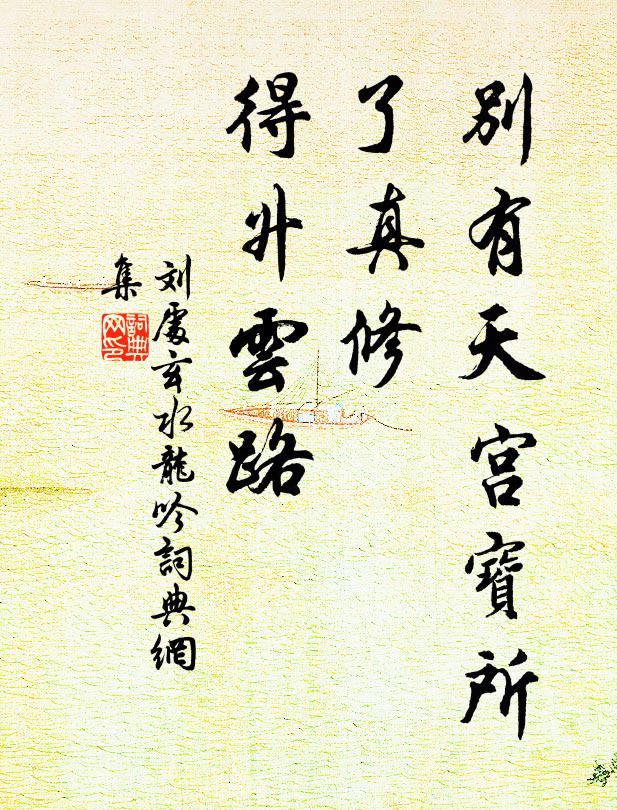 別有天宮寶所
了真修
得升雲路
刘處玄水龍吟詞典網
集
詞典
网印